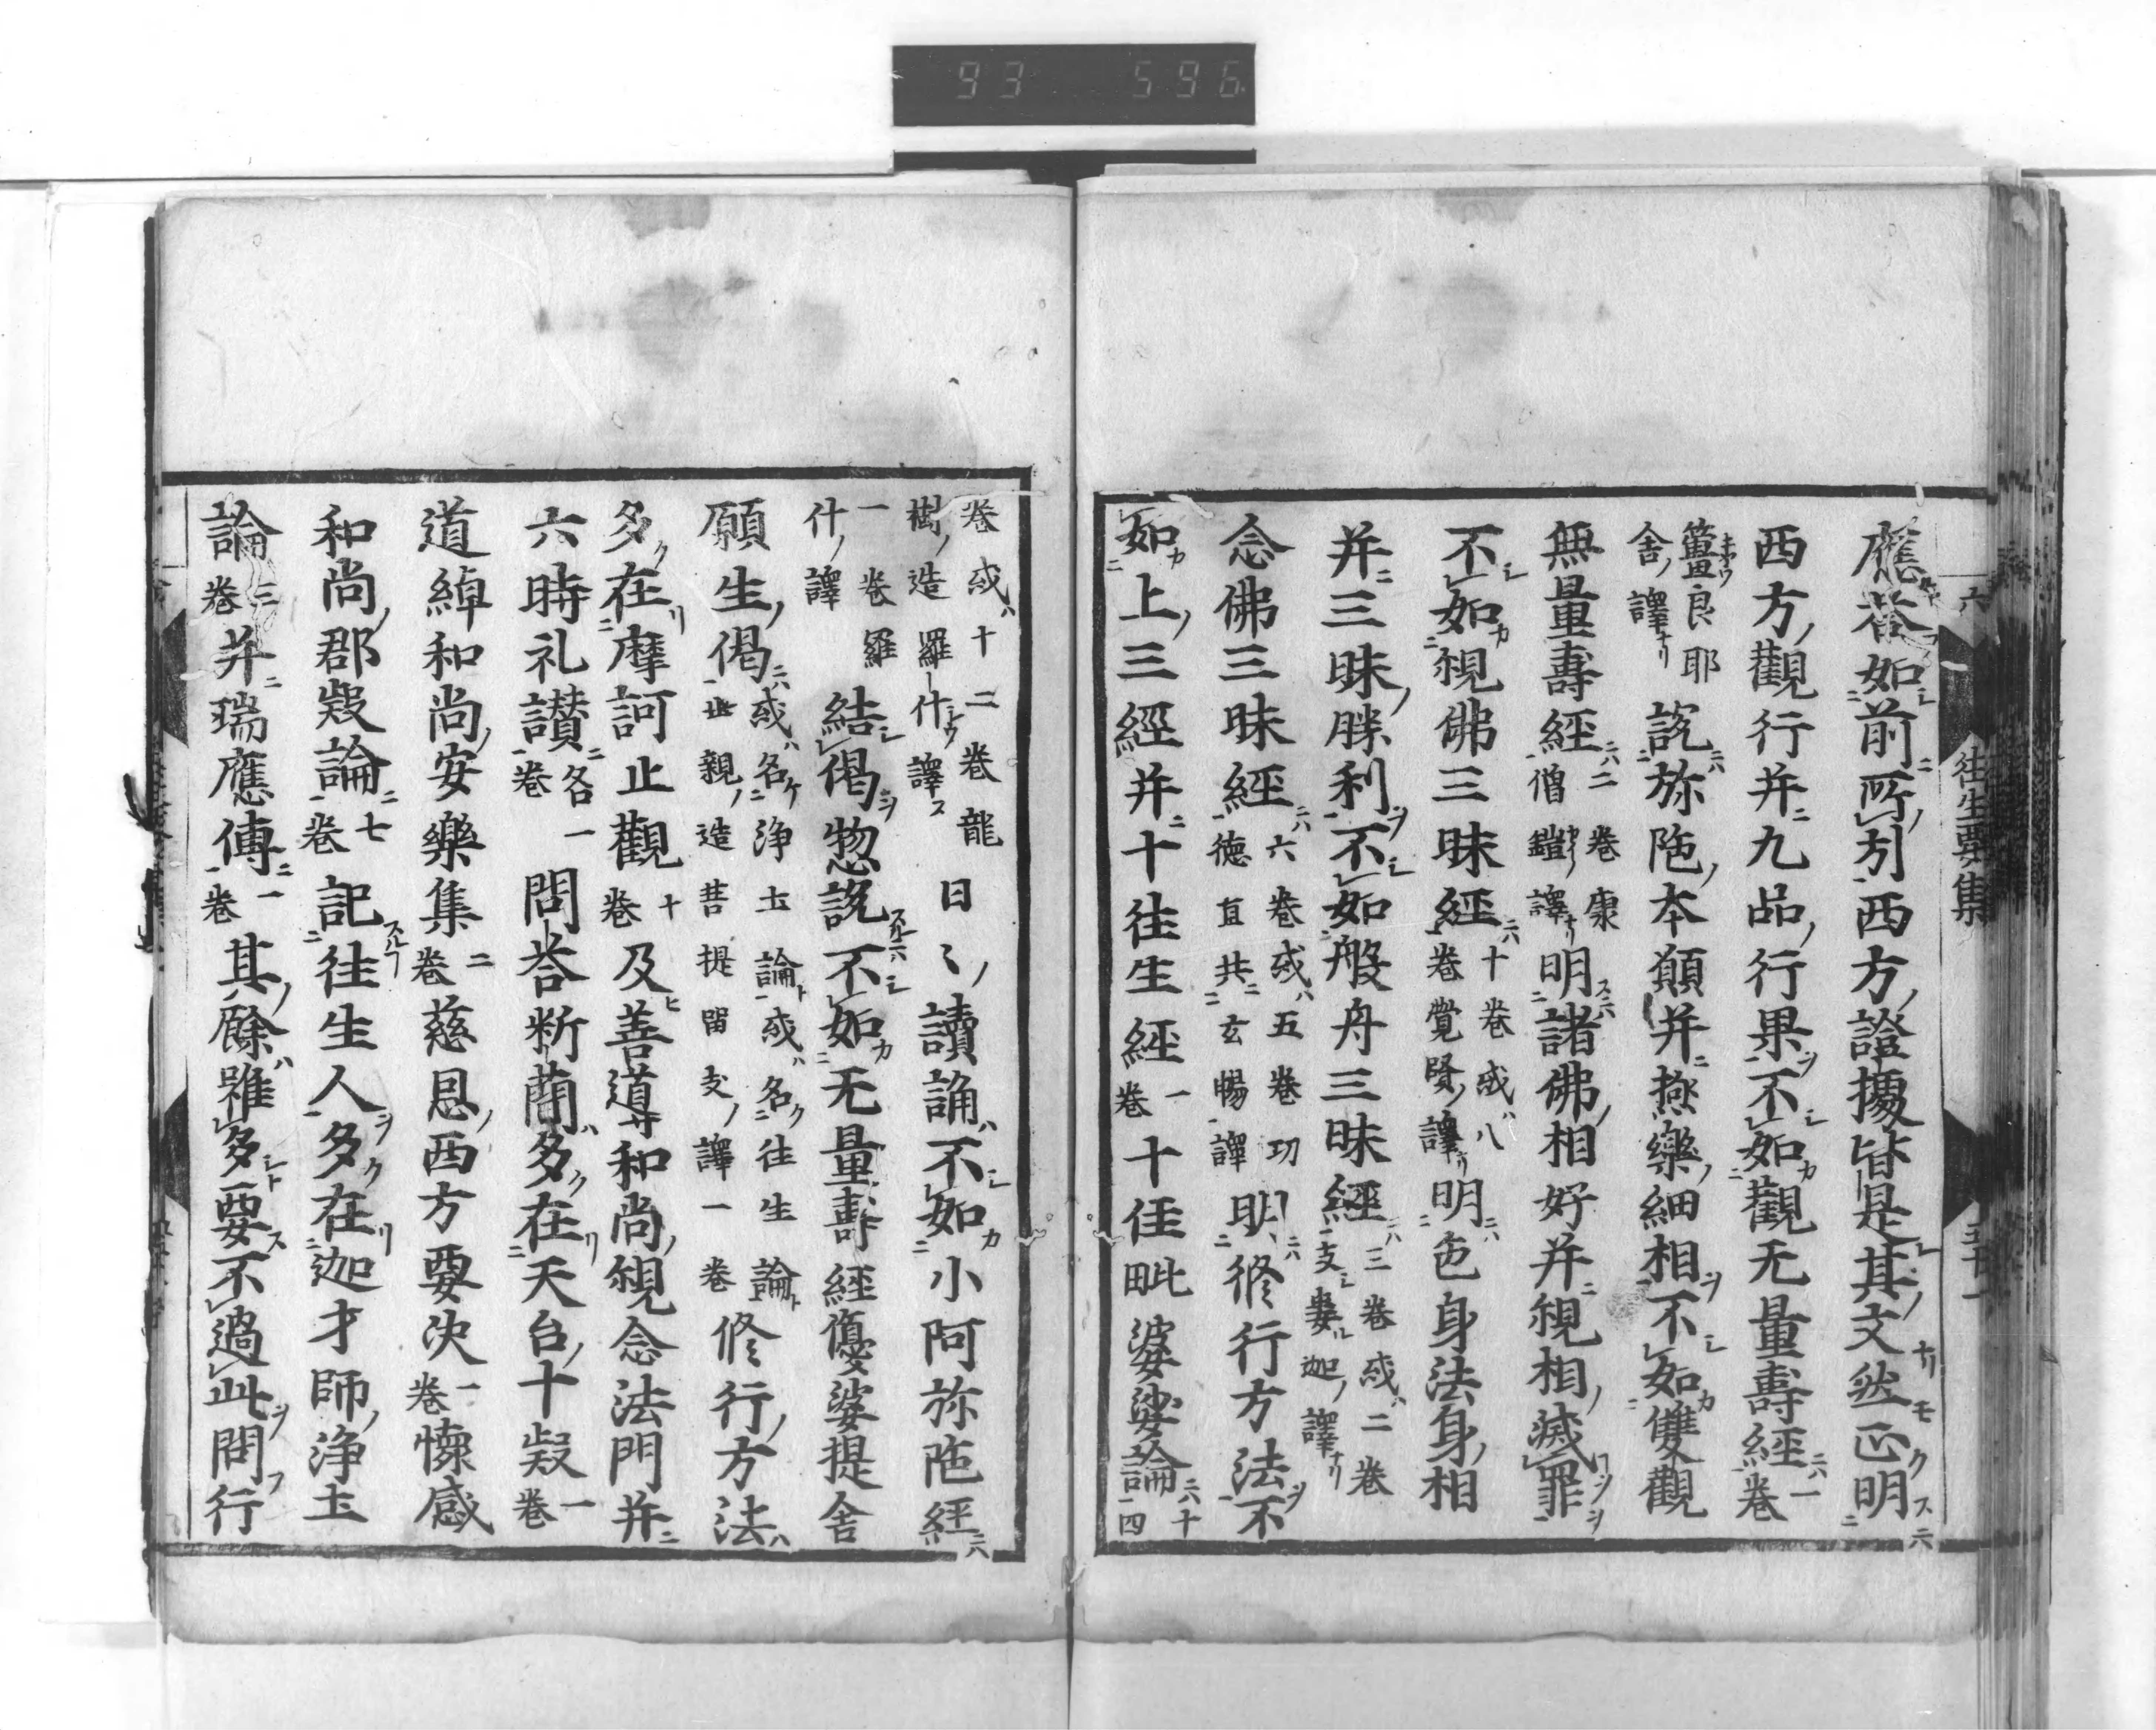 93 596
往生要集
應荅如前所列西方證據皆是其文然正明
西方觀行并九品行果不如觀无量壽經一卷
畺良耶舍譯說弥陁本願并極樂細相不如雙觀
無量壽經二卷康僧鎧譯明諸佛相好并觀相滅罪
不如觀佛三昧經十卷或八卷覺賢譯明色身法身相
并三昧勝利不如般舟三昧經三卷或二卷支婁迦譯
念佛三昧經六卷或五卷功德直共玄暢譯明修行方法不
如上三經并十往生經一卷十住毗婆娑論十四
卷或十二卷龍樹造羅什譯日〻讀誦不如小阿弥陁經
一卷羅什譯結偈惣說不如无量壽經優婆提舍
願生偈或名淨土論或名往生論世親造菩提留支譯一卷修行方法
多在摩訶止觀十卷及善道和尚觀念法門并
六時礼讃各一卷問荅料蕳多在天台十疑一卷
道綽和尚安樂集二卷慈恩西方要決一卷懷感
和尚郡疑論七卷記往生人多在迦才師淨土
論三卷并瑞應傳一卷其餘雖多要不過此問行